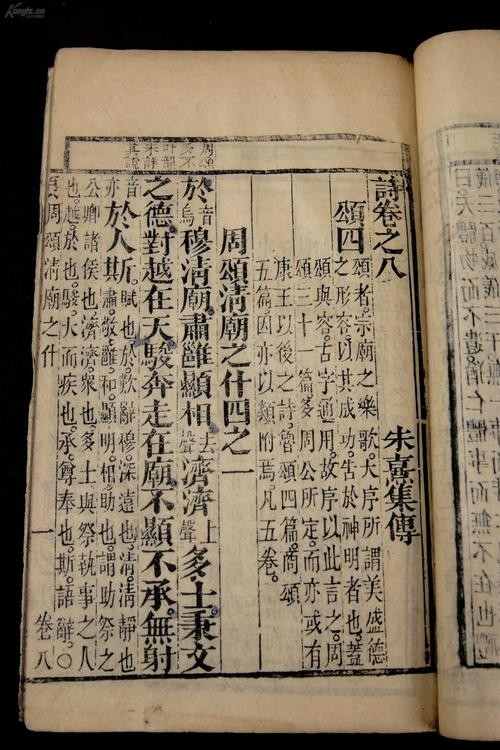 三百威儀三千
體物而不遺猶仁體事而無不
詩卷之八
朱熹集傳
頌四
頌者宗廟之樂歌大序所謂美盛德
之形容以其成功告於神明者也蓋
頌與容古字通用故序以此言之周
頌三十一篇多周公所定而亦或有
康王以後之詩魯頌四篇商頌
五篇因亦以類附焉凡五卷
周頌清廟之什四之一
周頌
多不
叶韻
未詳
其說
於音烏穆清廟肅雝顯相去聲濟濟上聲多士秉文
之德對越在天駿奔走在廟不顯不承無射
音亦於人斯
賦也於歎辭穆深遠也清清靜也
肅敬雝和顯明相助也謂助祭之
公卿諸侯也濟濟衆也多士與祭執事之人
也越於也駿大而疾也承尊奉也斯語辭○
周頌清廟之什 一 卷八
Kongfz.cn